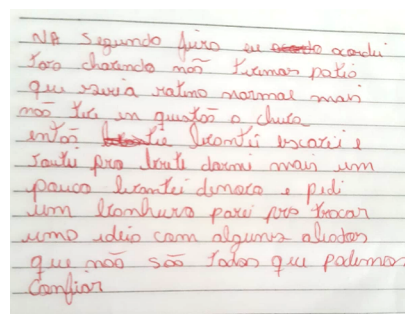 NA segundo feira eu acordei
tava chovendo não tivemos patio
que seria ratino normal mais
não tive en questão a chuva
então levantei escovei e
voutei pro brete dormi mais um
pouco levantei denovo e pidi
um banheiro parei pra trocar
uma ideia com alguns aliados
que não são todos que podemos
confiar